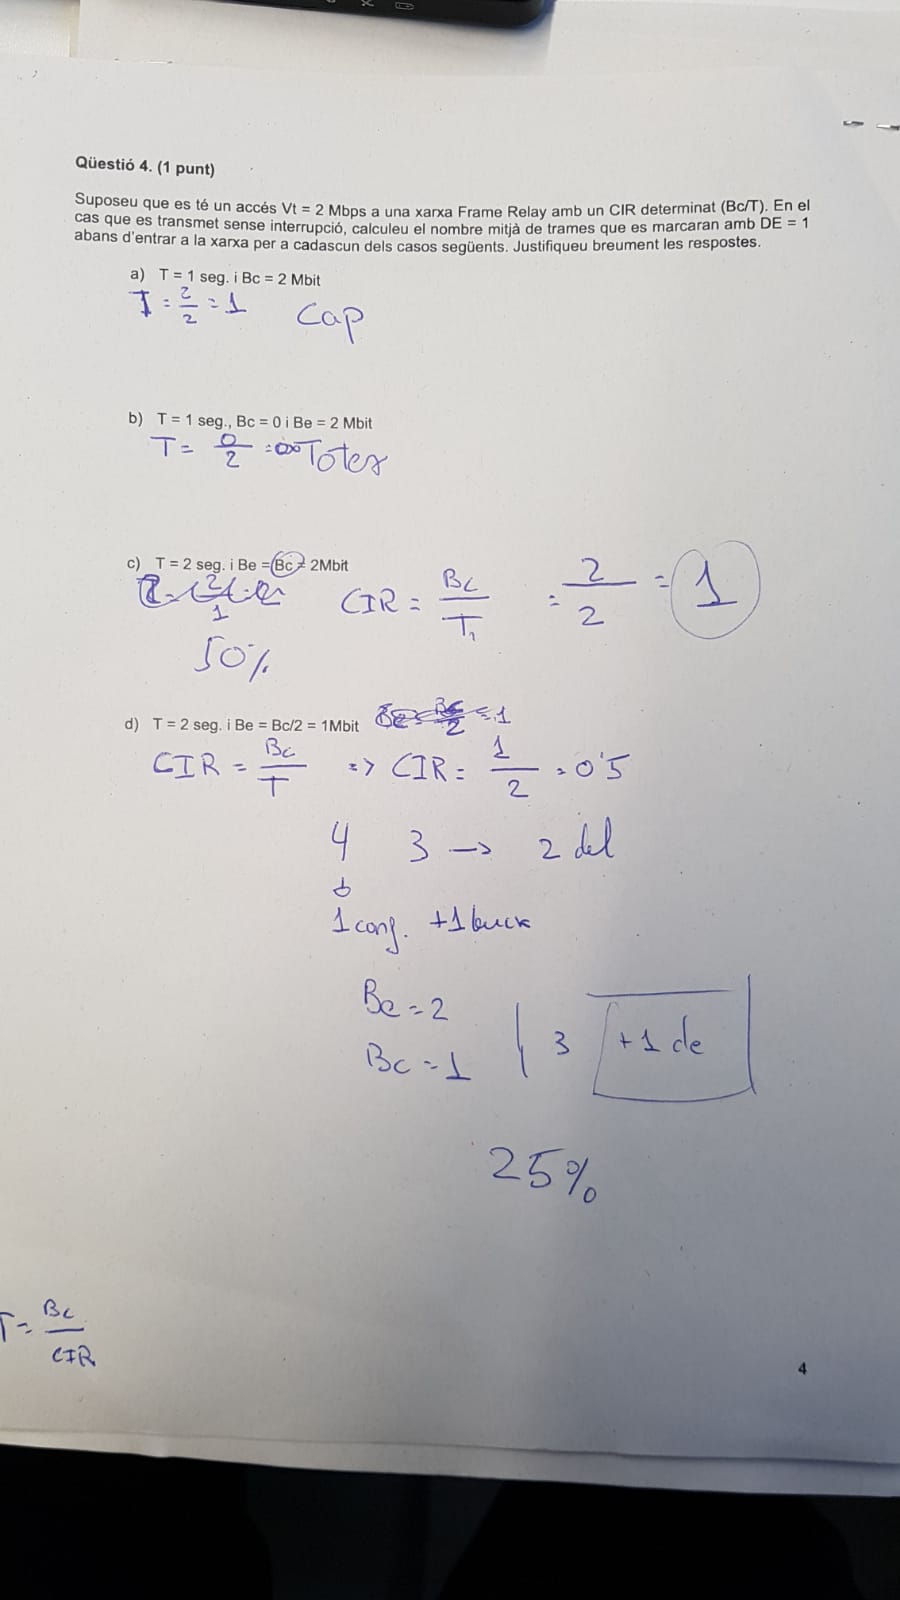 Qüestió 4. (1 punt)
Suposeu que es té un accés Vt = 2 Mbps a una xarxa Frame Relay amb un CIR determinat (Bc/T). En el
cas que es transmet sense interrupció, calculeu el nombre mitjà de trames que es marcaran amb DE = 1
abans d'entrar a la xarxa per a cadascun dels casos següents. Justifiqueu breument les respostes.
a) T = 1 seg. i Bc = 2 Mbit
T = 2/2 = 1 Cap
b) T = 1 seg., Bc = 0 i Be = 2 Mbit
T = 0/2 = ∞ Totes
c) T = 2 seg. i Be = Bc = 2Mbit
CIR = Bc/T = 2/2 = 1
50%
d) T = 2 seg. i Be = Bc/2 = 1Mbit
CIR = Bc/T => CIR = 1/2 = 0'5
4 3 -> 2 del
1 conf. +1
Be = 2
3 +1 de
Bc = 1
25%
T = Bc/CIR
4